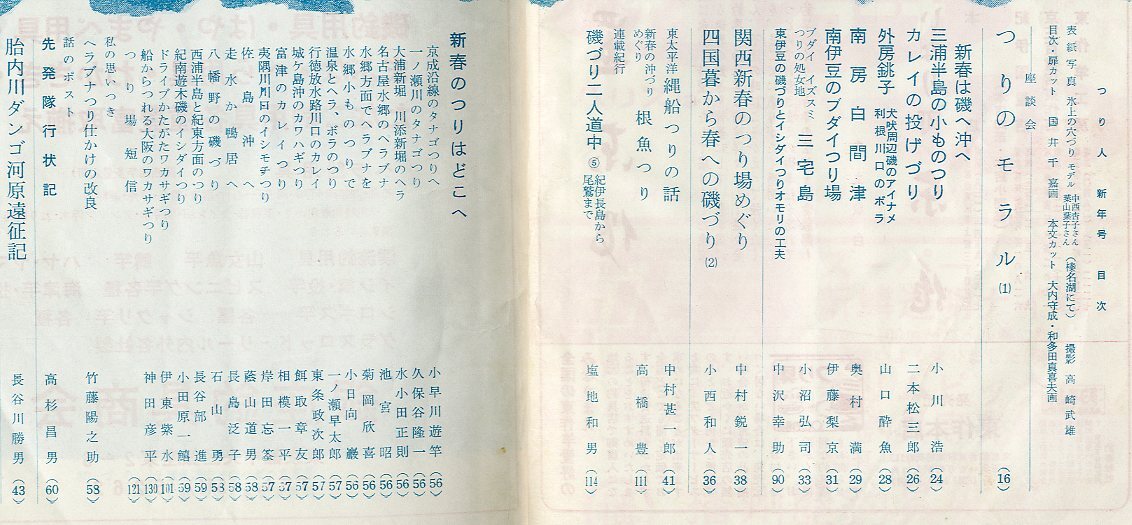 つり人 新年号 目次
表紙写真 氷上の穴づり モデル 中西杏子さん 葉山葉子さん (榛名湖にて) 撮影 高崎武雄
目次・扉カット 国井千嘉画 本文カット 大内守成・和多田真喜夫画
座談会
つりのモラル (1) (16)
新春は磯へ沖へ
三浦半島の小ものつり 小川浩 (24)
カレイの投げづり 二本松三郎 (26)
外房銚子 犬吠周辺磯のアイナメ 利根川口のボラ 山口酔魚 (28)
南房白間津 奥村満 (29)
南伊豆のブダイつり場 伊藤梨京 (31)
ブダイ・イズスミ つりの処女地 三宅島 小沼弘司 (33)
東伊豆の磯づりとイシダイつりオモリの工夫 中沢幸助 (90)
関西新春のつり場めぐり 中村鋭一 (38)
四国暮から春への磯づり (2) 小西和人 (36)
東太平洋 縄船つりの話 中村甚一郎 (41)
新春の沖づり めぐり 根魚つり 高橋豊 (111)
連載紀行
磯づり二人道中 ⑤ 紀伊長島から 尾鷲まで 塩地和男 (114)
新春のつりはどこへ
京成沿線のタナゴつりへ 小早川遊竿 (56)
一ノ瀬川のタナゴつり 久保谷隆一 (56)
大浦新堀・川添新堀のヘラ 水小田正則 (56)
名古屋水郷のヘラブナ 池宮昭 (56)
水郷方面でヘラブナを 菊岡欣喜 (56)
水郷小ものつりで 小日向巖 (56)
温泉とヘラ、ボラのつり 一ノ瀬早太郎 (56)
行徳放水路川口のカレイ 東条政次郎 (57)
城ケ島沖のカワハギつり 餌取章友 (57)
富津のカレイつり 相模一平 (57)
夷隅川川口のイシモチつり 岸田忘筌 (57)
走水か鴨居へ 蔭山道男 (58)
佐島沖へ 長島泛子 (58)
八幡野の磯づり 石山勇 (58)
西浦半島と紀東方面のつり 長谷部進 (59)
紀南遊木磯のイシダイつり 小田原一鱚 (59)
ドライブかたがたワカサギつり 伊東紫水 (101)
船からつれる大阪のワカサギつり 神田彦平 (130)
つり場短信 (121)
私の思いつき
ヘラブナつり仕かけの改良 竹藤陽之助 (58)
話のポスト
先発隊行状記 高杉昌男 (60)
胎内川ダンゴ河原遠征記 長谷川勝男 (43)